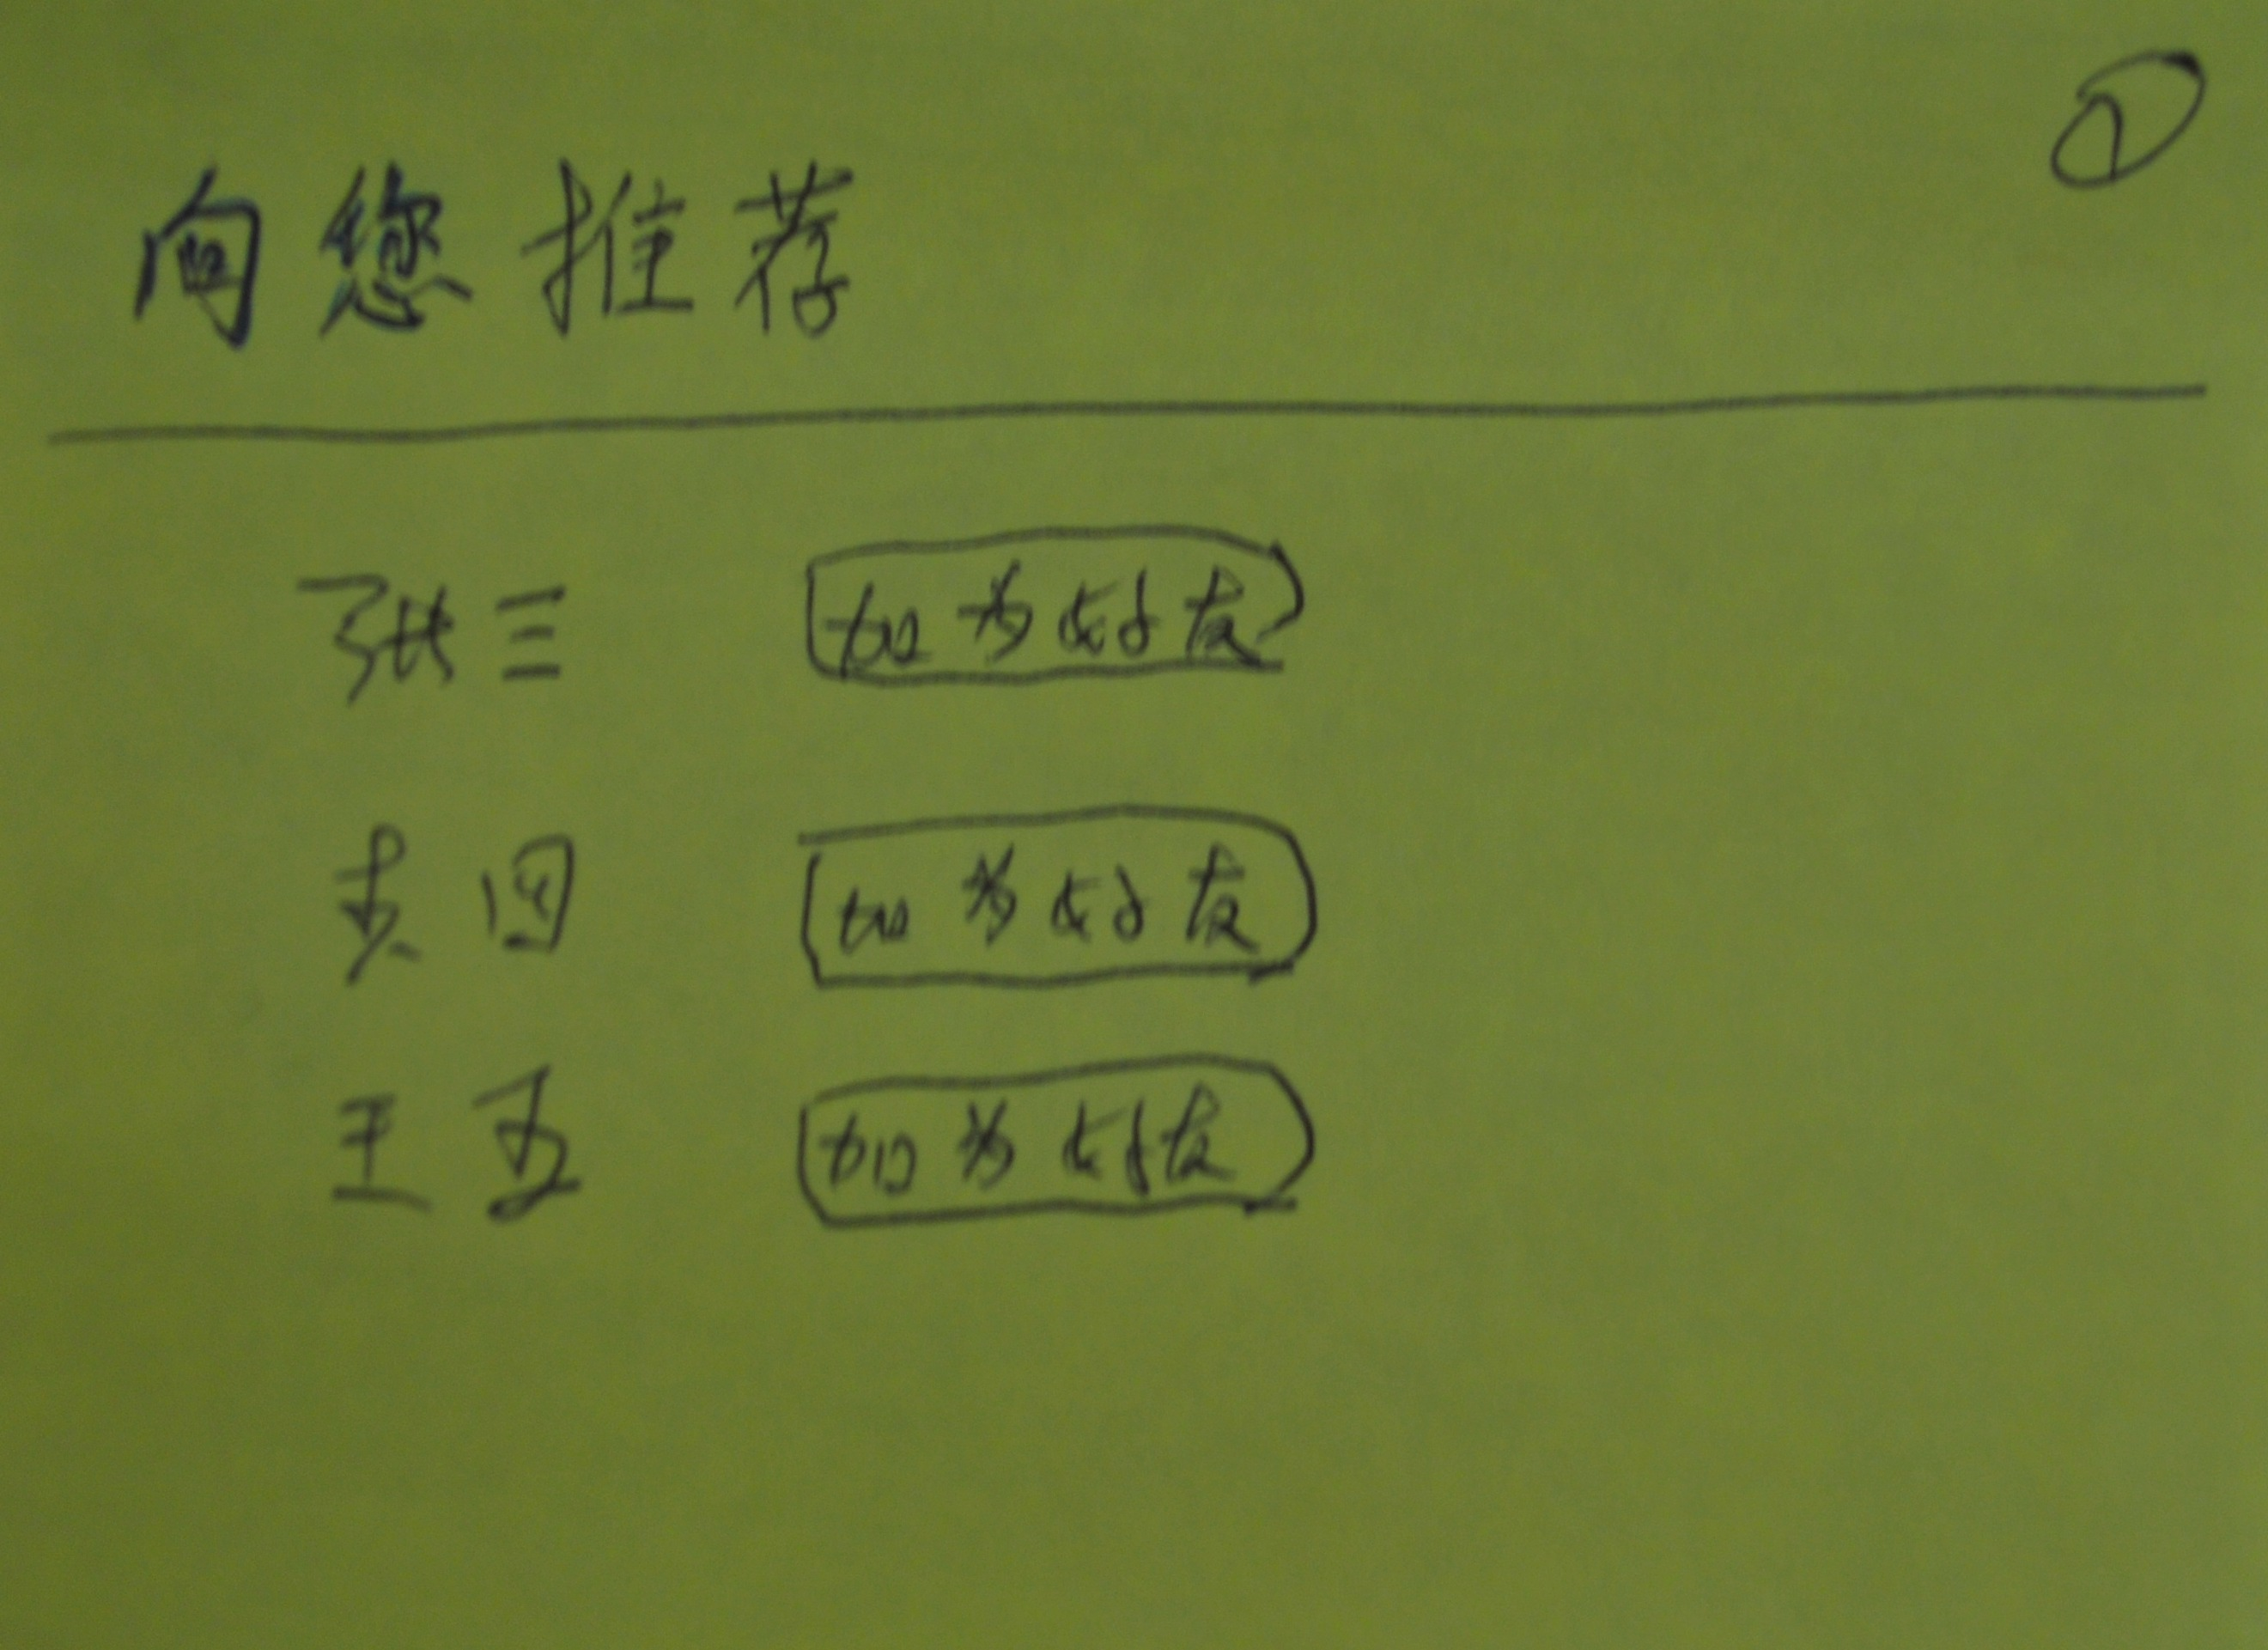 ①
向您推荐
张三 加为好友
李四 加为好友
王五 加为好友